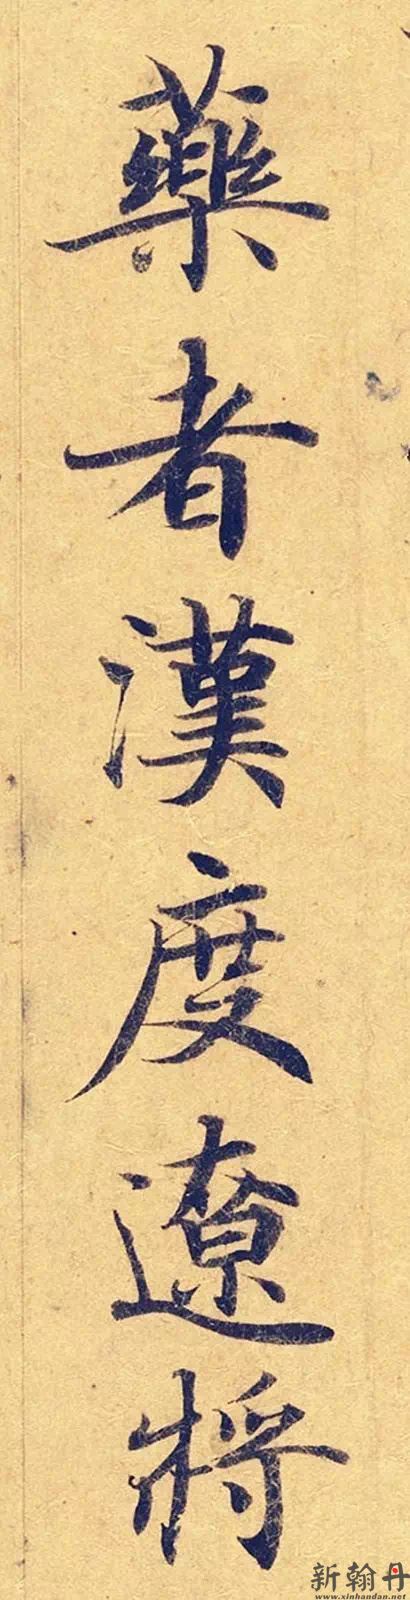 藥者漢度遼將
新翰丹
www.xinhandan.net